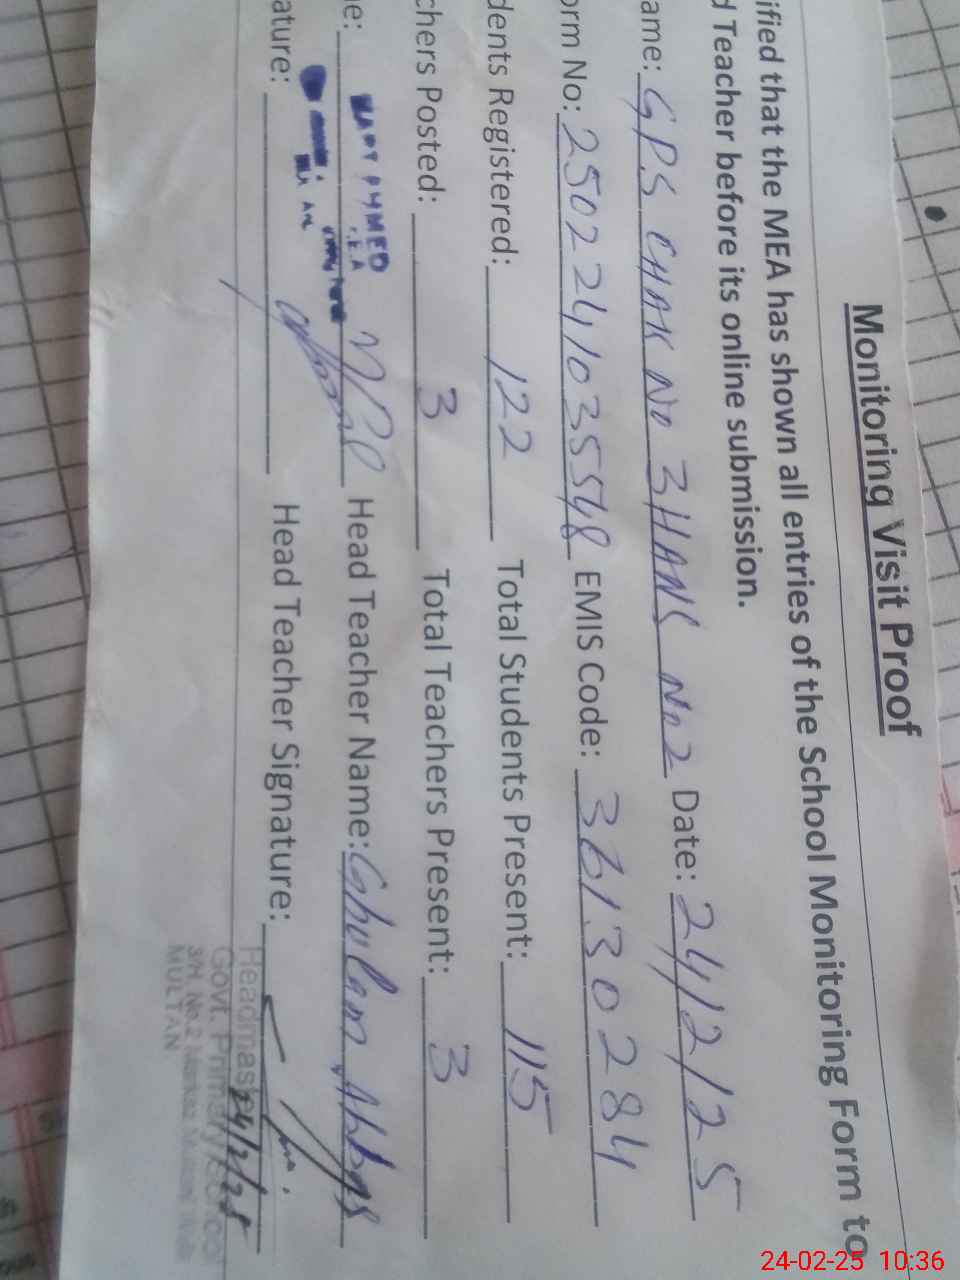 Monitoring Visit Proof
ified that the MEA has shown all entries of the School Monitoring Form to
d Teacher before its online submission.
ame: GPS CHAK No 3HANS No2 Date: 24/2/25
orm No: 2502241035548 EMIS Code: 36130284
dents Registered: 122 Total Students Present: 115
chers Posted: 3 Total Teachers Present: 3
e: Head Teacher Name: Ghulam Abbas
ature: Head Teacher Signature:
24/2/25
Headmaster
Govt. Primary School
3/H. No.2
MULTAN
24-02-25 10:36